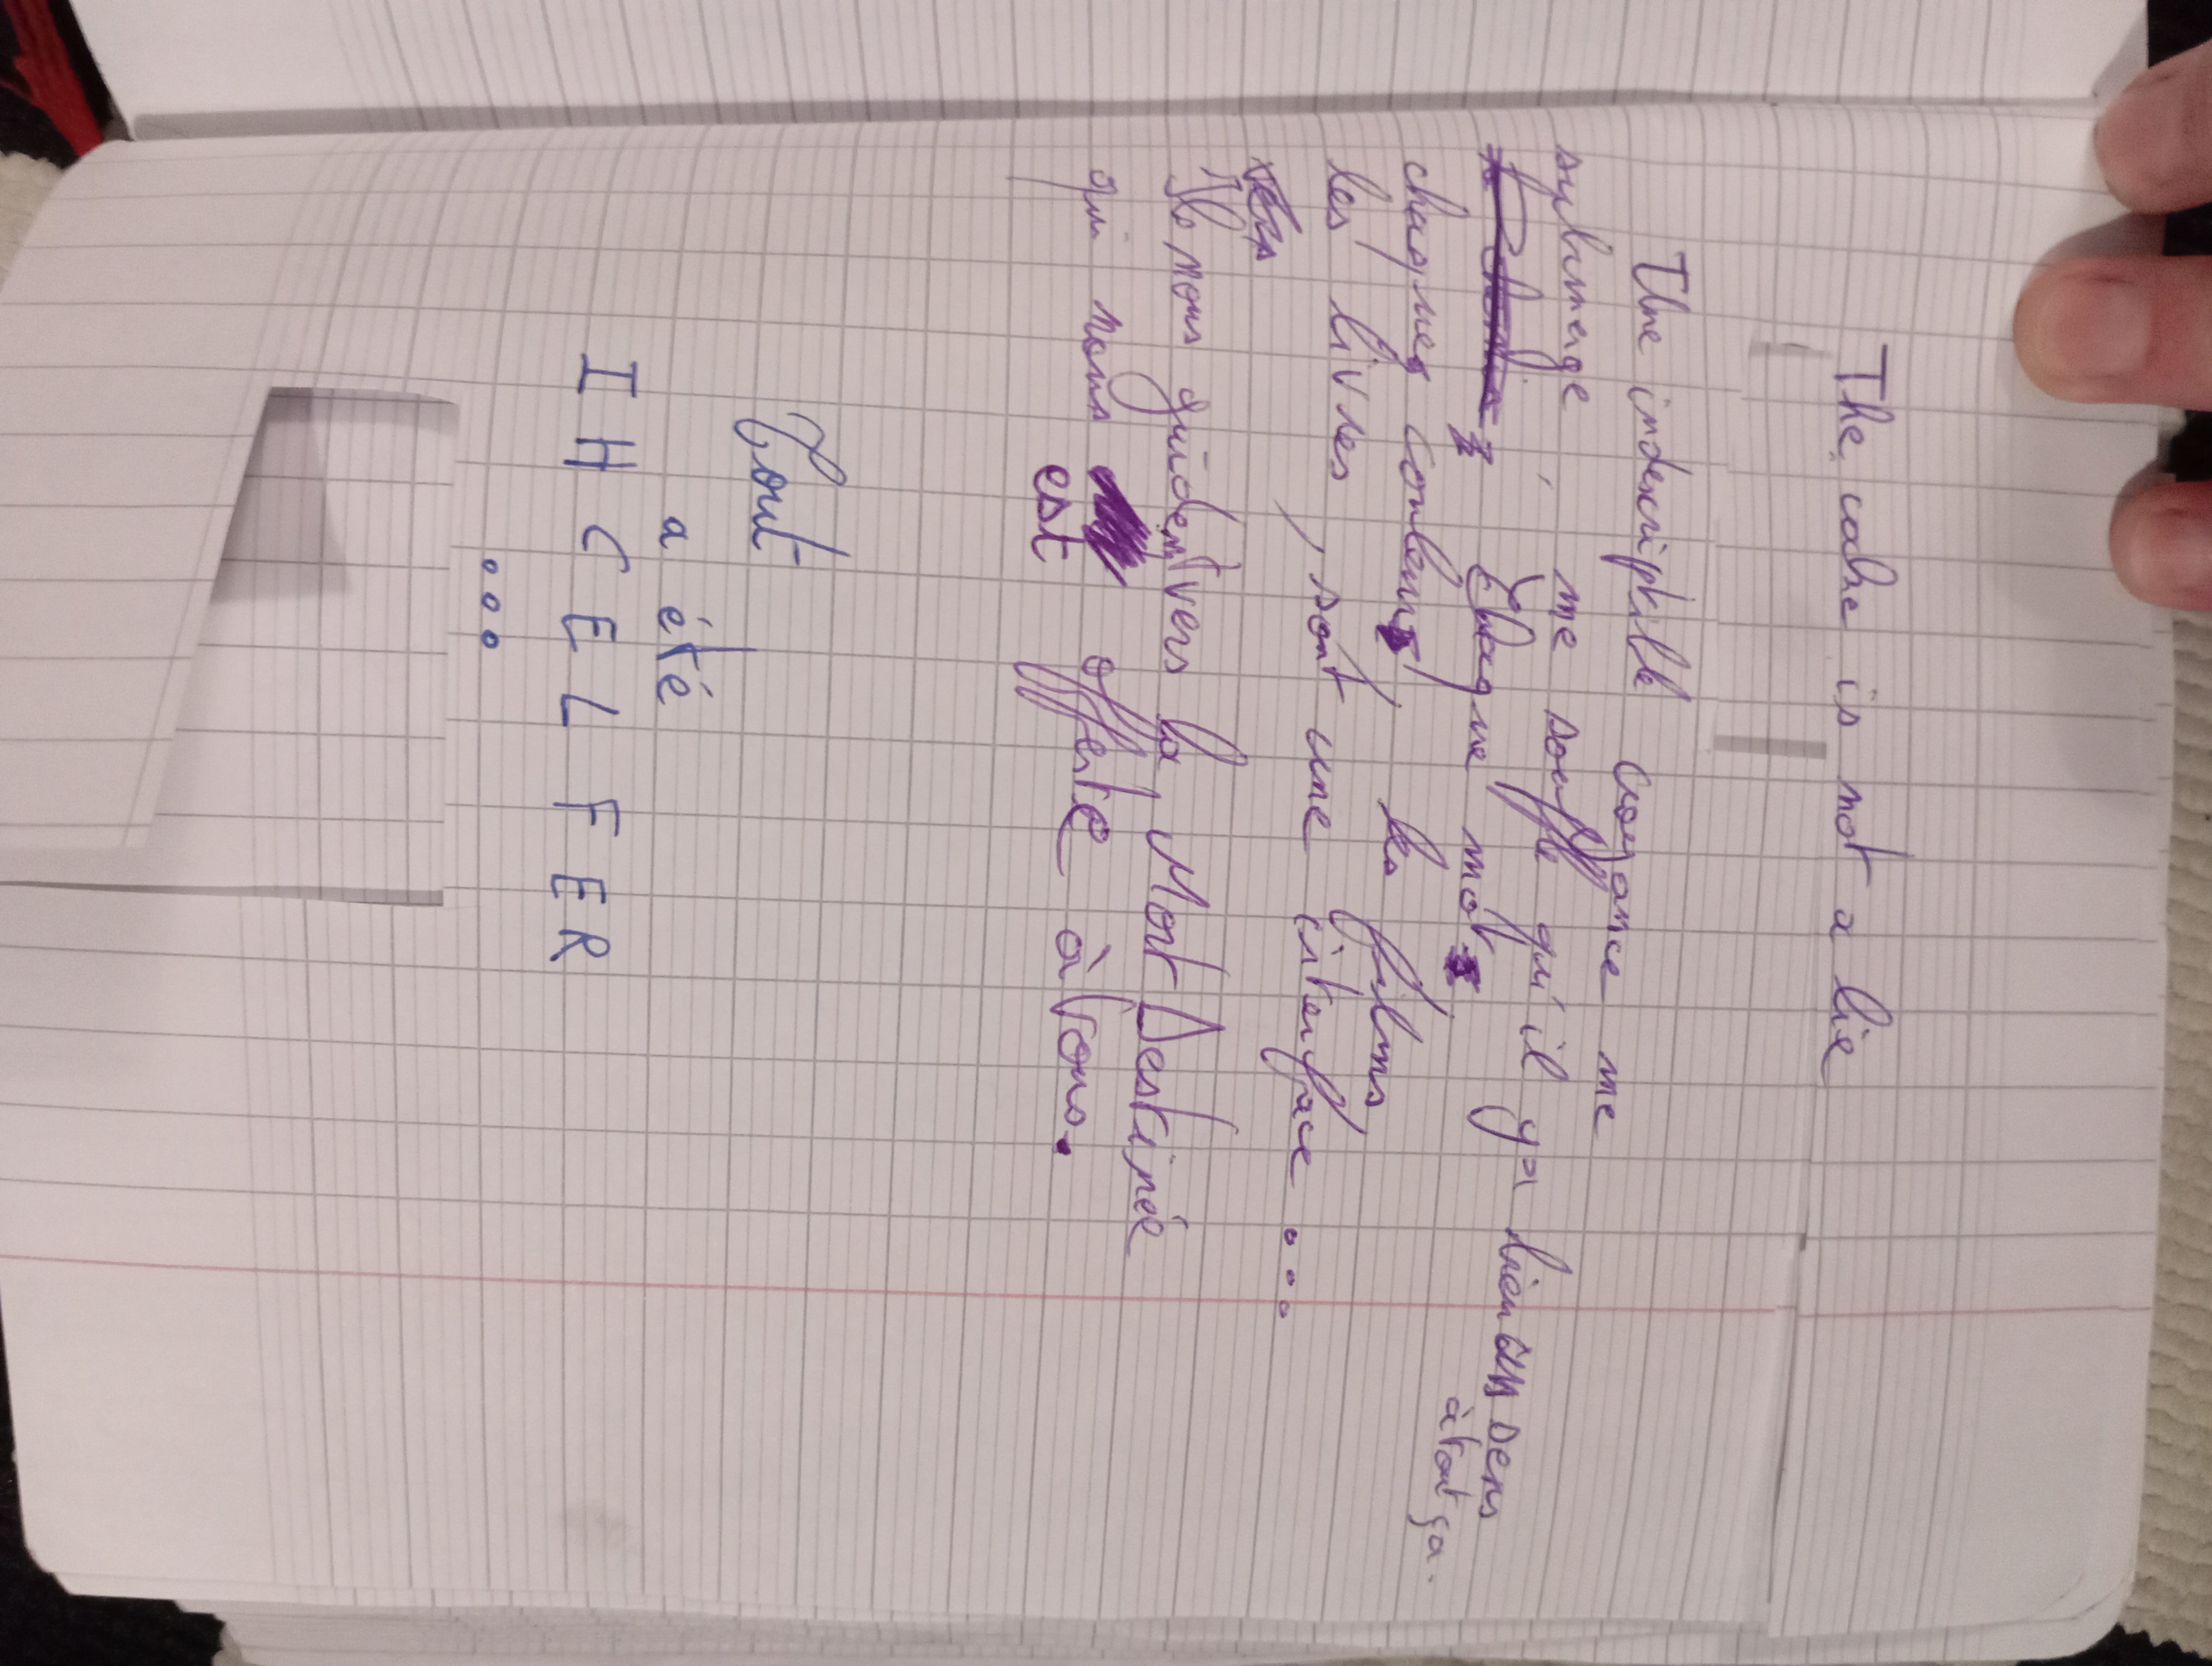 The cake is not a lie
Une indescriptible croyance me
submerge, me souffle qu'il y a bien un sens
à tout ça.
Chaque mot,
chaque couleur, les films,
les livres, sont une interface...
vers
Ils nous guident vers la Mort Destinée
qui nous offerte à tous.
est
Tout
a été
I H C E L F E R
...